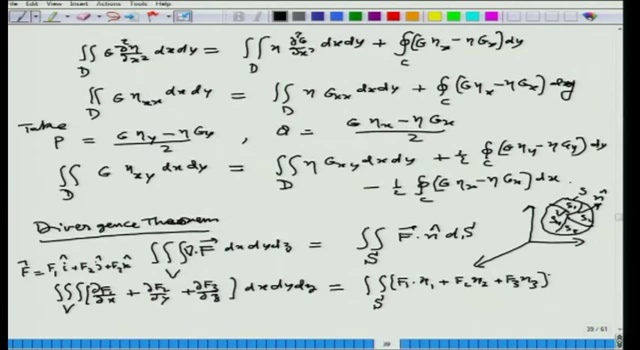 ∬_D G ∂²η/∂x² dxdy = ∬_D η ∂²G/∂x² dxdy + ∮_C (G η_x − η G_x) dy
∬_D G η_xx dxdy = ∬_D η G_xx dxdy + ∮_C (G η_x − η G_x) dy
Take
P = (G η_y − η G_y)/2 , Q = (G η_x − η G_x)/2
∬_D G η_xy dxdy = ∬_D η G_xy dxdy + ½ ∮_C (G η_y − η G_y) dy
− ½ ∮_C (G η_x − η G_x) dx.
Divergence Theorem
∭_V ∇·F⃗ dxdydz = ∬_S F⃗·n̂ dS
F⃗ = F₁î + F₂ĵ + F₃k̂
∭_V [∂F₁/∂x + ∂F₂/∂y + ∂F₃/∂z] dxdydz = ∬_S [F₁·n₁ + F₂n₂ + F₃n₃]
S
n̂
39